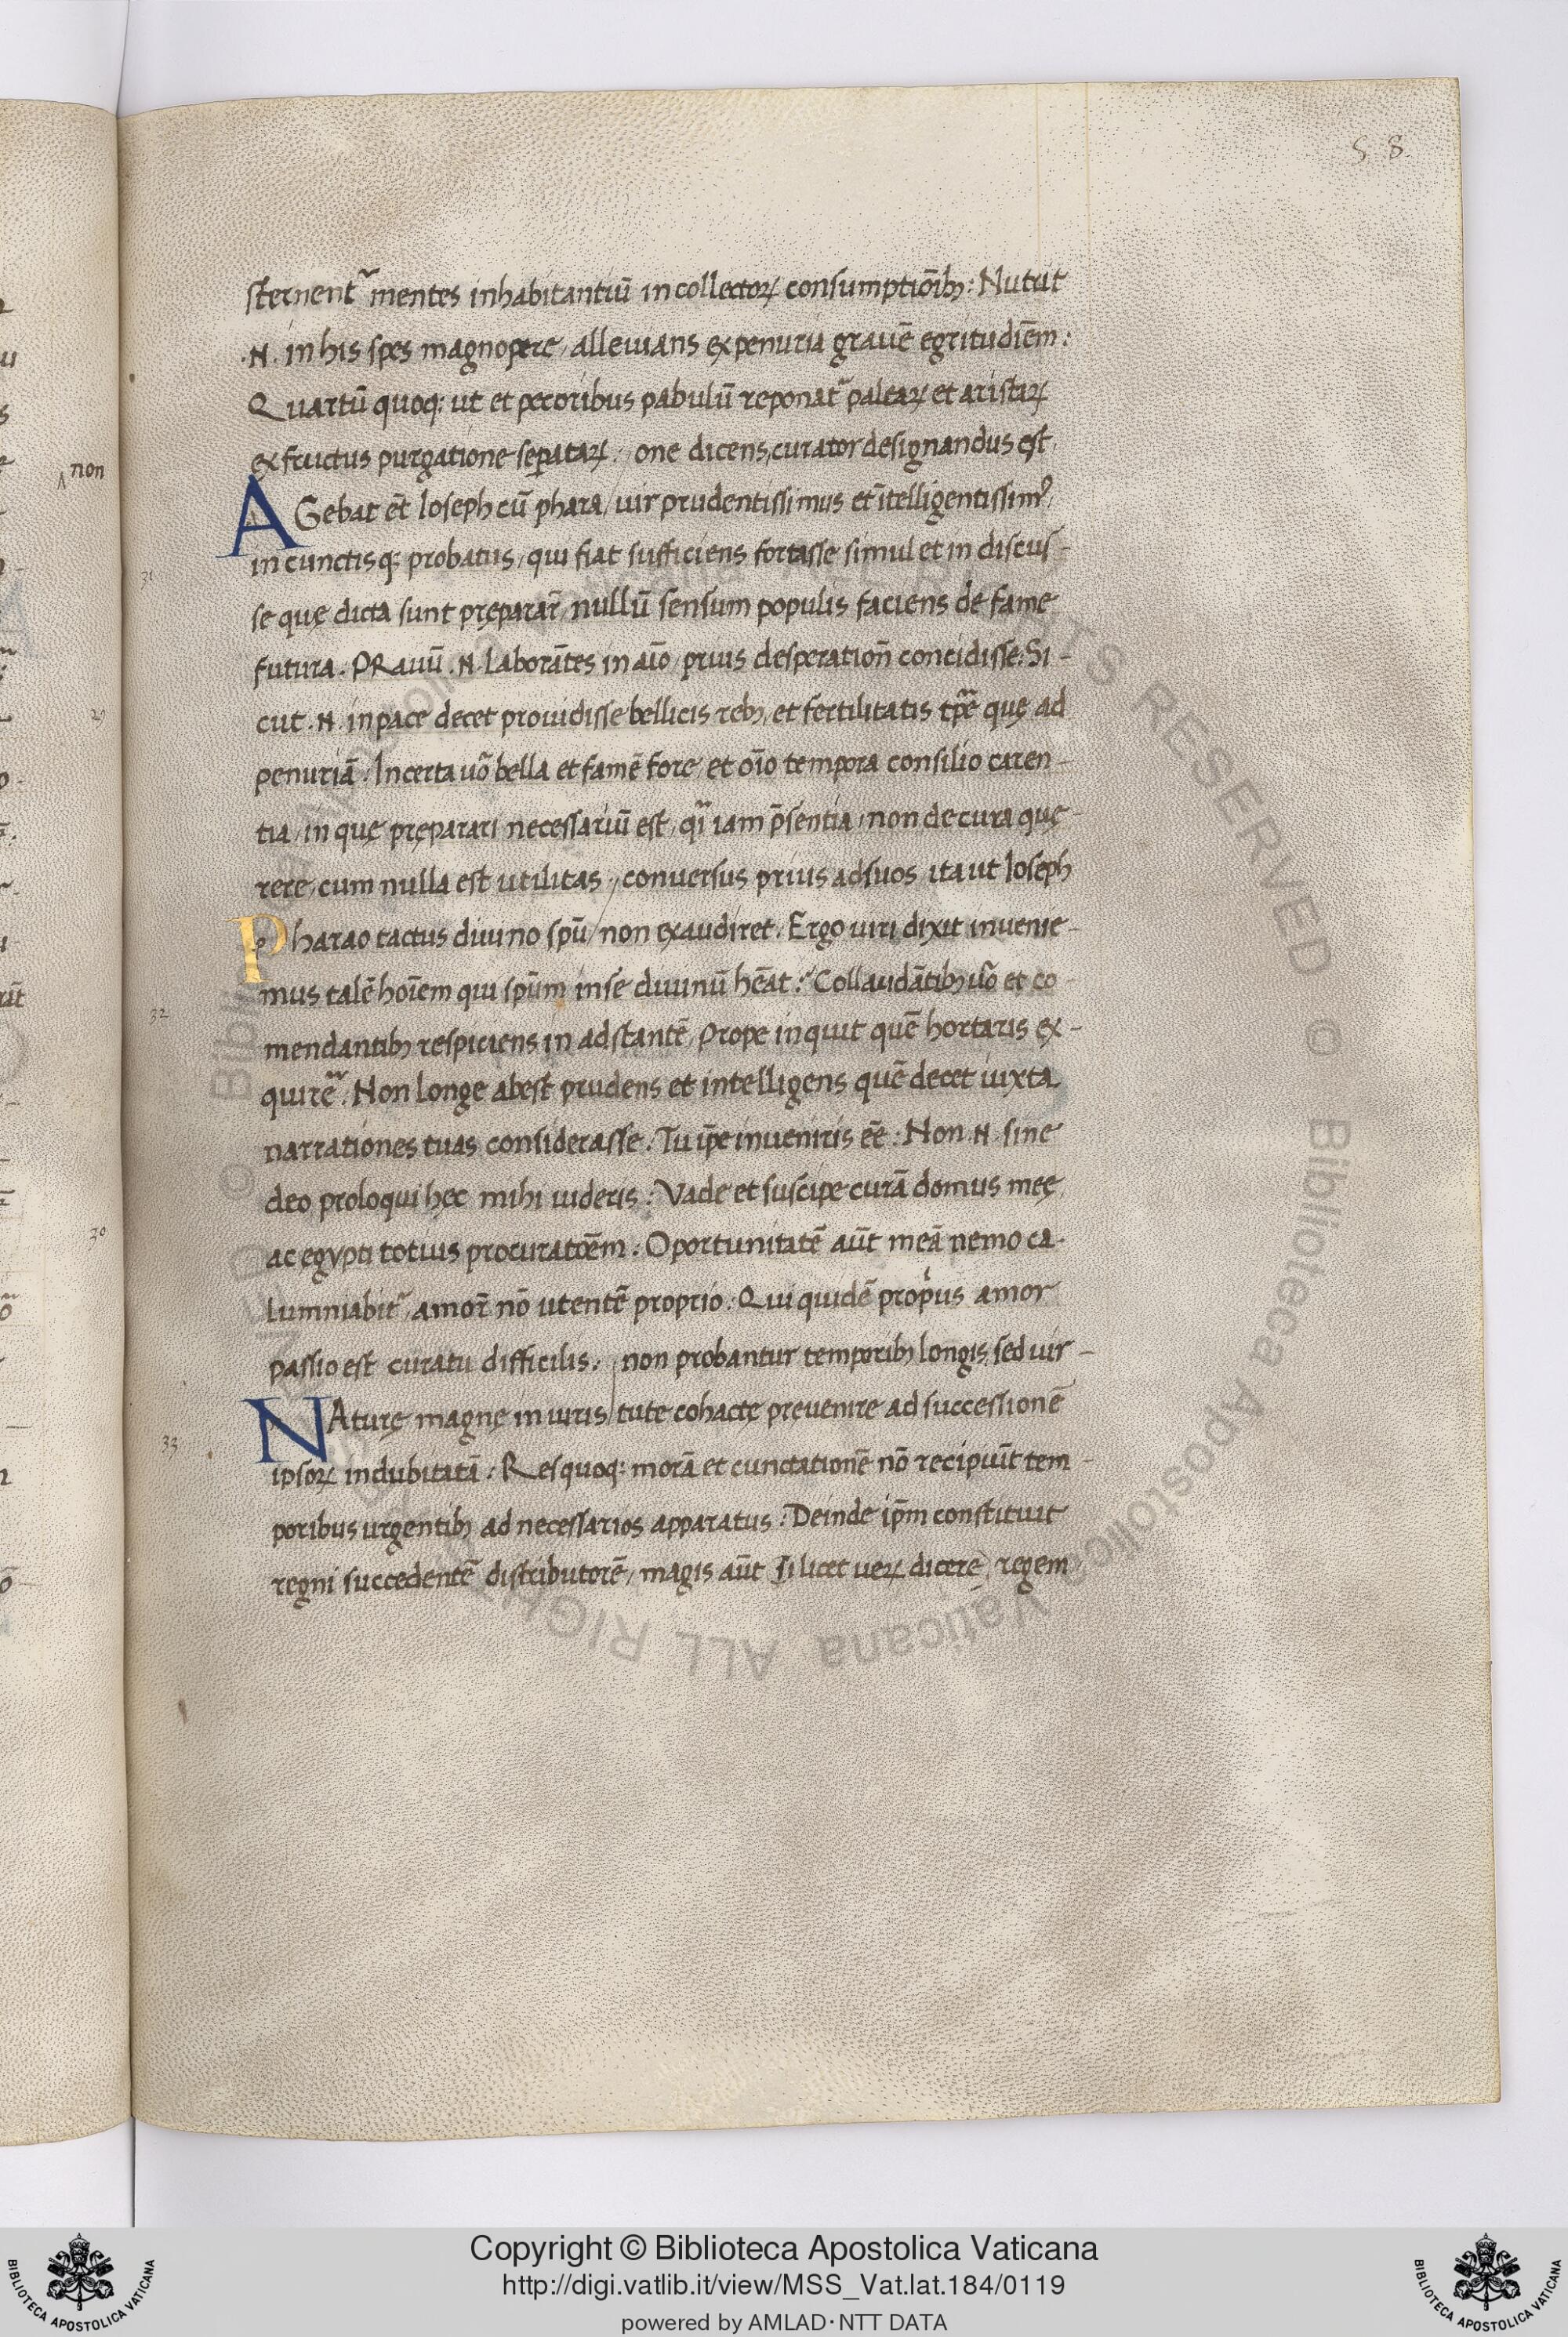 58
sternent᷑ mentes inhabitantiū in collectoꝝ consumptiōibꝫ: Nutrit
.N. in his spes magnopere, alleuians ex penuria grauē egritudiēm:
Quartū quoqꝫ ut et pecoribus pabulū reponat᷑ paleaꝝ et aristaꝝ
ex fructus purgatione sepataꝝ: one dicens, curator designandus est,
non
AGebat et̄ Ioseph cū phara, uir prudentissimus et ītelligentissimꝰ,
in cunctisqꝫ probatus, qui fiat sufficiens fortasse simul et in discus-
31
se quę dicta sunt pręparar̄, nullū sensum populis faciens de fame
futura. PRauū .N. laborātes in aīo, prius desperatioñ concidisse: Si-
cut .N. in pace decet prouidisse bellicis rebꝫ, et fertilitatis tp̄e quę ad
29
penuriā: Incerta uō bella et famē fore, et oīo tempora consilio caren-
tia, in quę pręparari necessariū est, qī iam p̄sentia, non de cura quę-
rere, cum nulla est utilitas, conuersus prius ad suos ita ut Ioseph
Pharao tactus diuino spū, non exaudiret. Ergo uiri dixit inuenie-
mus talē hoīem qui spūm in se diuinū hēat: Collaudātibꝫ uō et co-
32
mendantibꝫ respiciens in adstantē, Prope inquit quē hortaris ex-
quire᷑. Non longe abest prudens et intelligens quē decet iuxta
narrationes tuas considerasse. Tu ip̄e inueniris eē: Non .N. sine
deo proloqui hęc mihi uideris: Vade et suscipe curā domus męe,
ac egypti totius procuratoēm: Oportunitatē aūt meā nemo ca-
30
lumniabit᷑, amor̄ nō utentē proprio. Qui quidē propius amor
passio est curatu difficilis. non probantur temporibꝫ longis, sed uir-
NAturę magnę in uiris tute cohactę preuenire ad successionē
33
ipsoꝝ indubitatā: Res quoqꝫ morā et cunctationē nō recipiūt tem-
poribus urgentibꝫ ad necessarios apparatus: Deinde ip̄m constituit
regni succedentē distributorē, magis aūt si licet ueꝝ dicere, regem
Copyright © Biblioteca Apostolica Vaticana
http://digi.vatlib.it/view/MSS_Vat.lat.184/0119
powered by AMLAD · NTT DATA